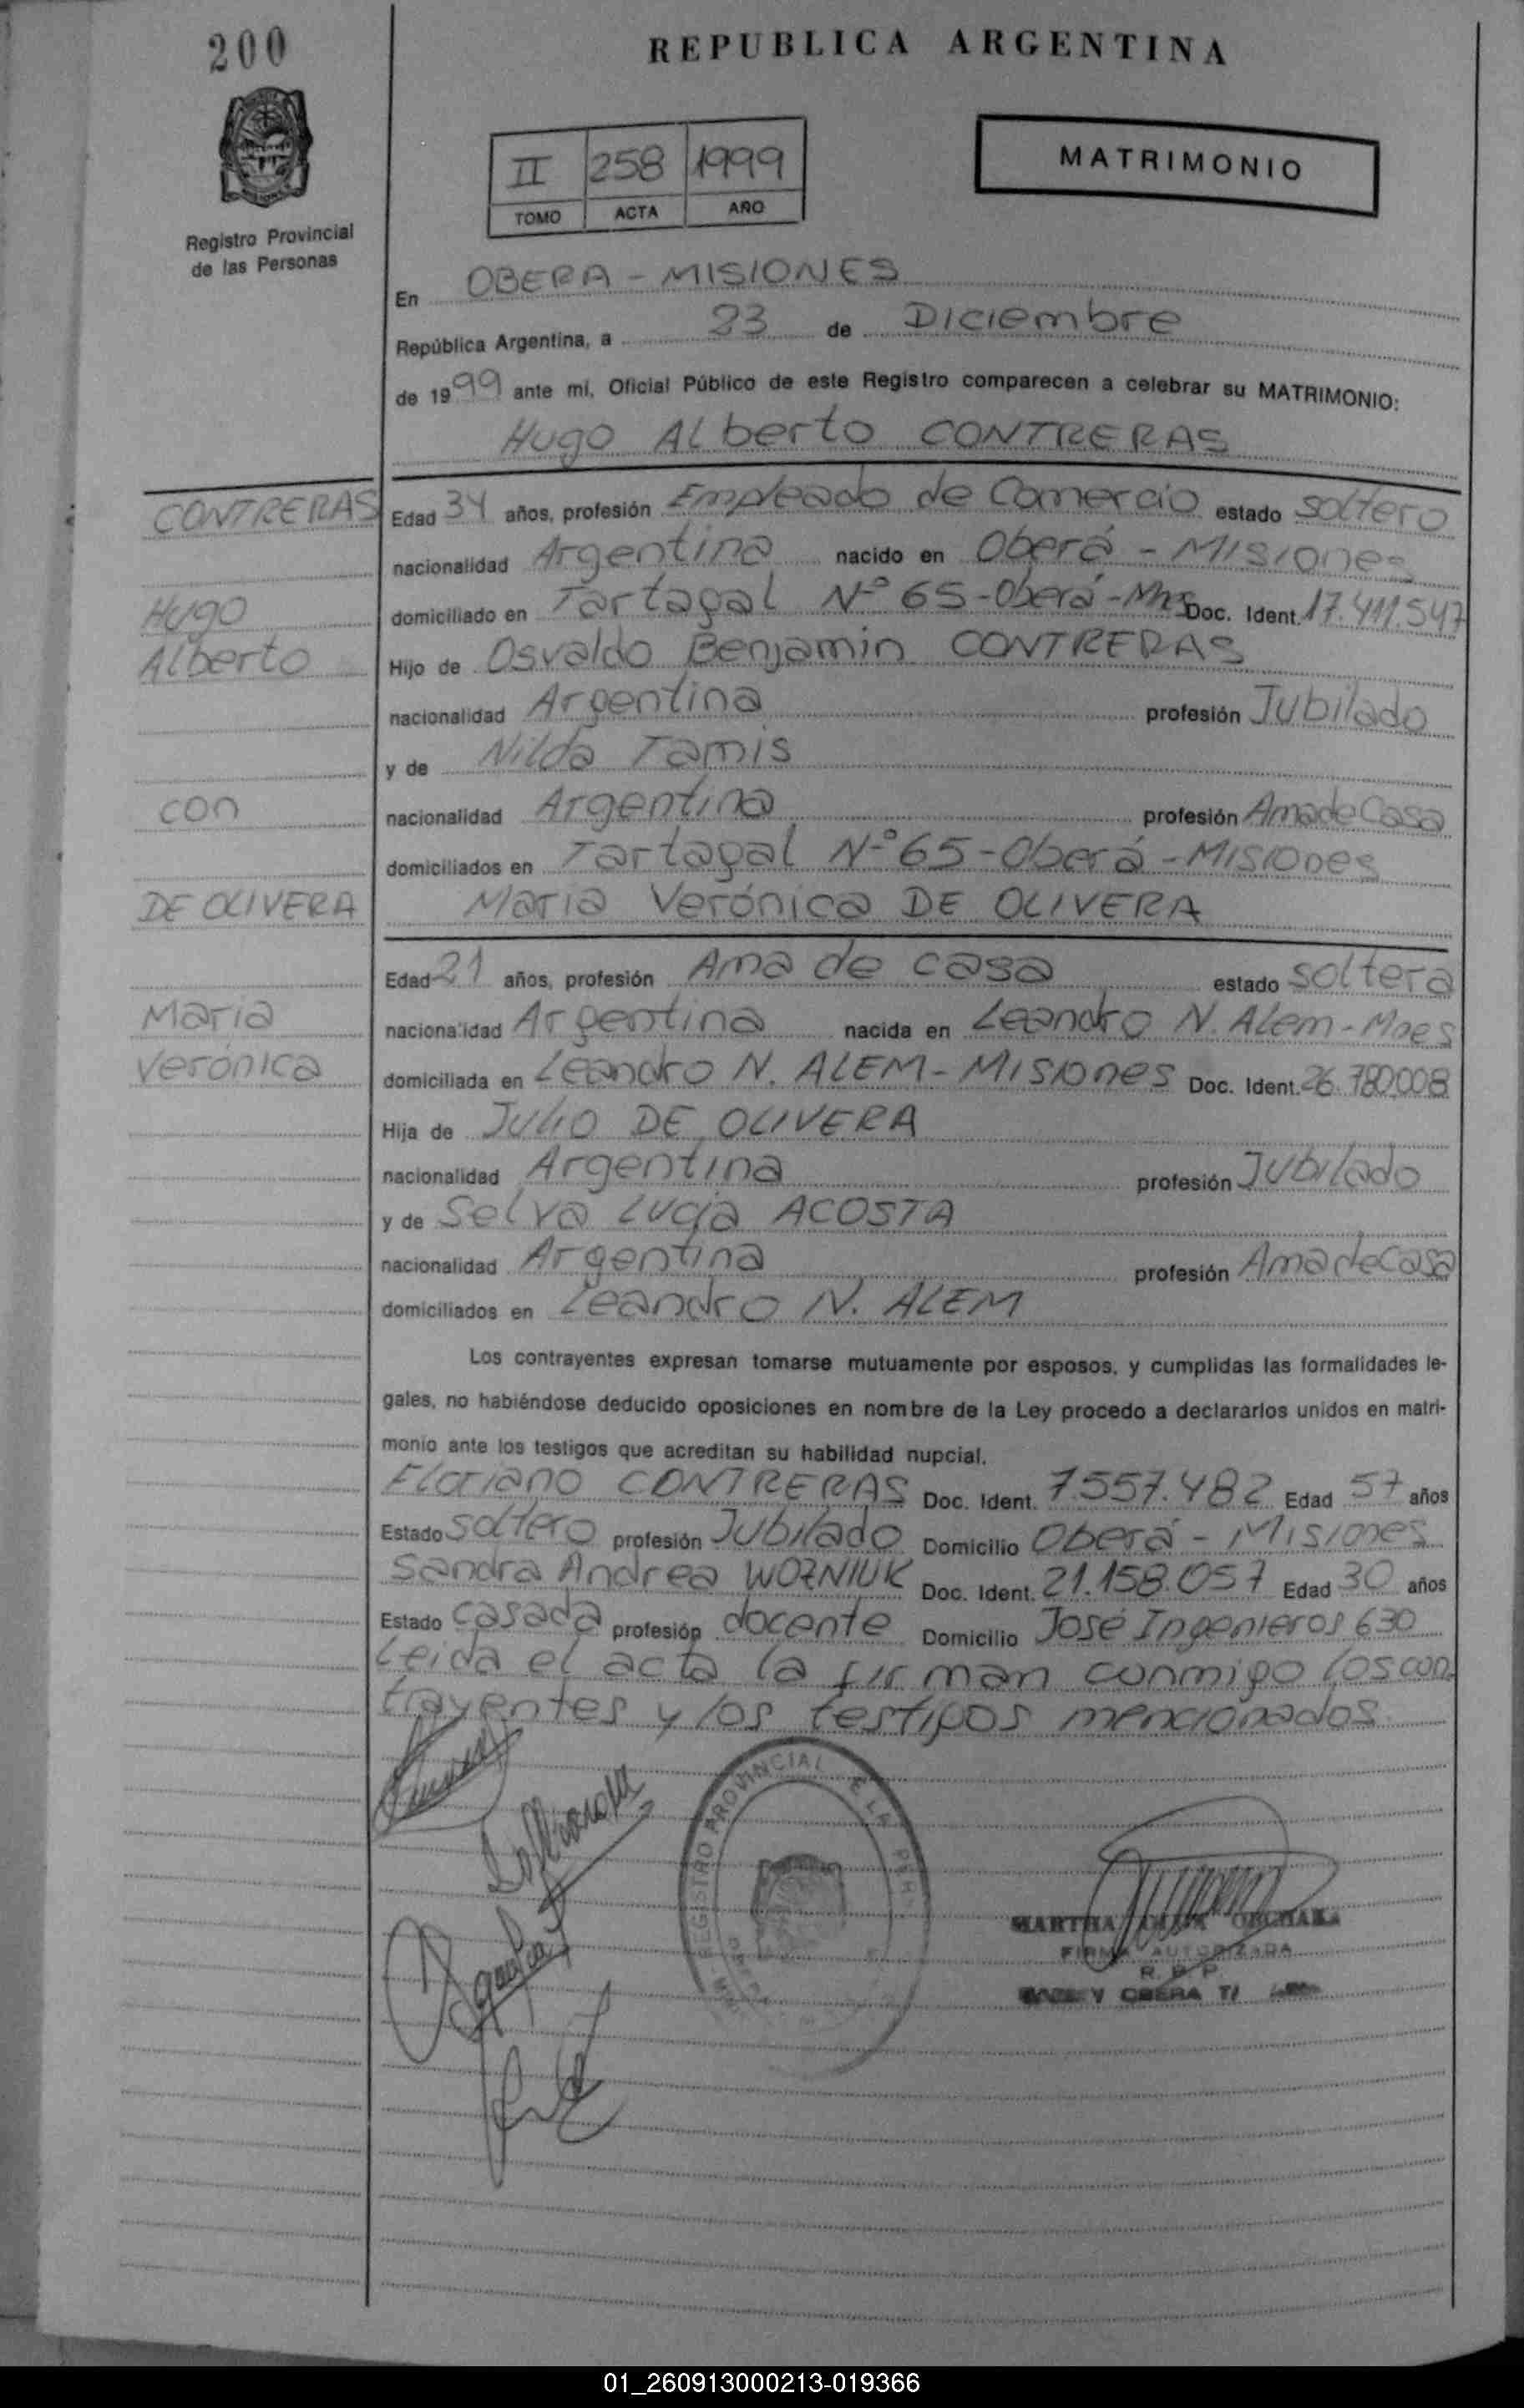 200
REPUBLICA ARGENTINA
II 258 1999
TOMO ACTA AÑO
MATRIMONIO
Registro Provincial
de las Personas
En OBERA - MISIONES
República Argentina, a 23 de Diciembre
de 1999 ante mi, Oficial Público de este Registro comparecen a celebrar su MATRIMONIO:
Hugo Alberto CONTRERAS
CONTRERAS
Edad 34 años, profesión Empleado de Comercio estado soltero
nacionalidad Argentina nacido en Oberá - Misiones
Hugo
domiciliado en Tartagal Nº 65-Oberá-Mnes Doc. Ident. 17.411.547
Alberto
Hijo de Osvaldo Benjamin CONTRERAS
nacionalidad Argentina profesión Jubilado
y de Nilda Tamis
con
nacionalidad Argentina profesión Ama de Casa
domiciliados en Tartagal Nº 65-Oberá-Misiones
DE OLIVERA
Maria Verónica DE OLIVERA
Edad 21 años, profesión Ama de casa estado soltera
Maria
nacionalidad Argentina nacida en Leandro N. Alem-Mnes
Verónica
domiciliada en Leandro N. ALEM-Misiones Doc. Ident. 26.780.008
Hija de Julio DE OLIVERA
nacionalidad Argentina profesión Jubilado
y de Selva Lucia ACOSTA
nacionalidad Argentina profesión Ama de Casa
domiciliados en Leandro N. ALEM
Los contrayentes expresan tomarse mutuamente por esposos, y cumplidas las formalidades le-
gales, no habiéndose deducido oposiciones en nombre de la Ley procedo a declararlos unidos en matri-
monio ante los testigos que acreditan su habilidad nupcial.
Floriano CONTRERAS Doc. Ident. 7.557.482 Edad 57 años
Estado soltero profesión Jubilado Domicilio Oberá - Misiones
Sandra Andrea WOZNIUK Doc. Ident. 21.158.057 Edad 30 años
Estado casada profesión docente Domicilio José Ingenieros 630
Leida el acta la firman conmigo los con
trayentes y los testigos mencionados
REGISTRO PROVINCIAL DE LA PER
MARTHA
FIRMA AUTORIZADA
R. P. P.
OBERA
01_260913000213-019366